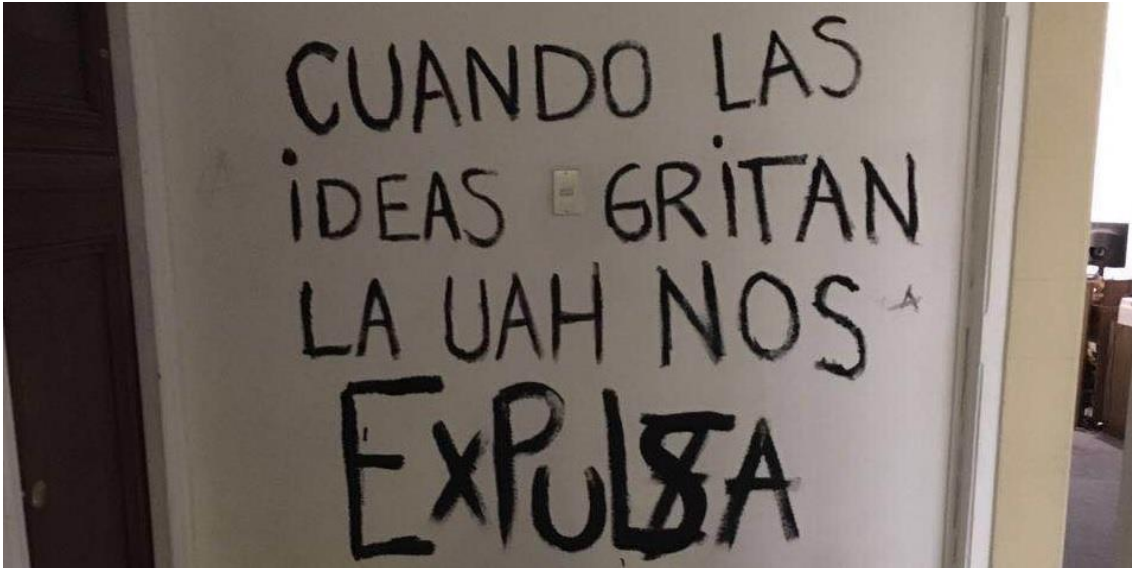 CUANDO LAS
iDEAS GRiTAN
LA UAH NOS
ExPuLSA